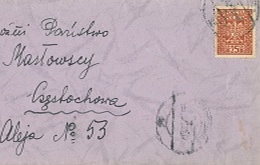 Państwo
Masłowscy
Częstochowa
Aleja No 53